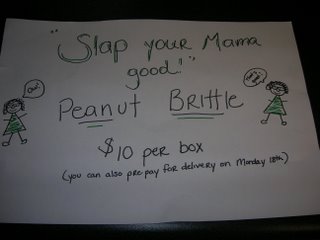 "Slap your Mama
good!"
Ow!
Peanut Brittle
$10 per box
(you can also pre-pay for delivery on Monday 18th)